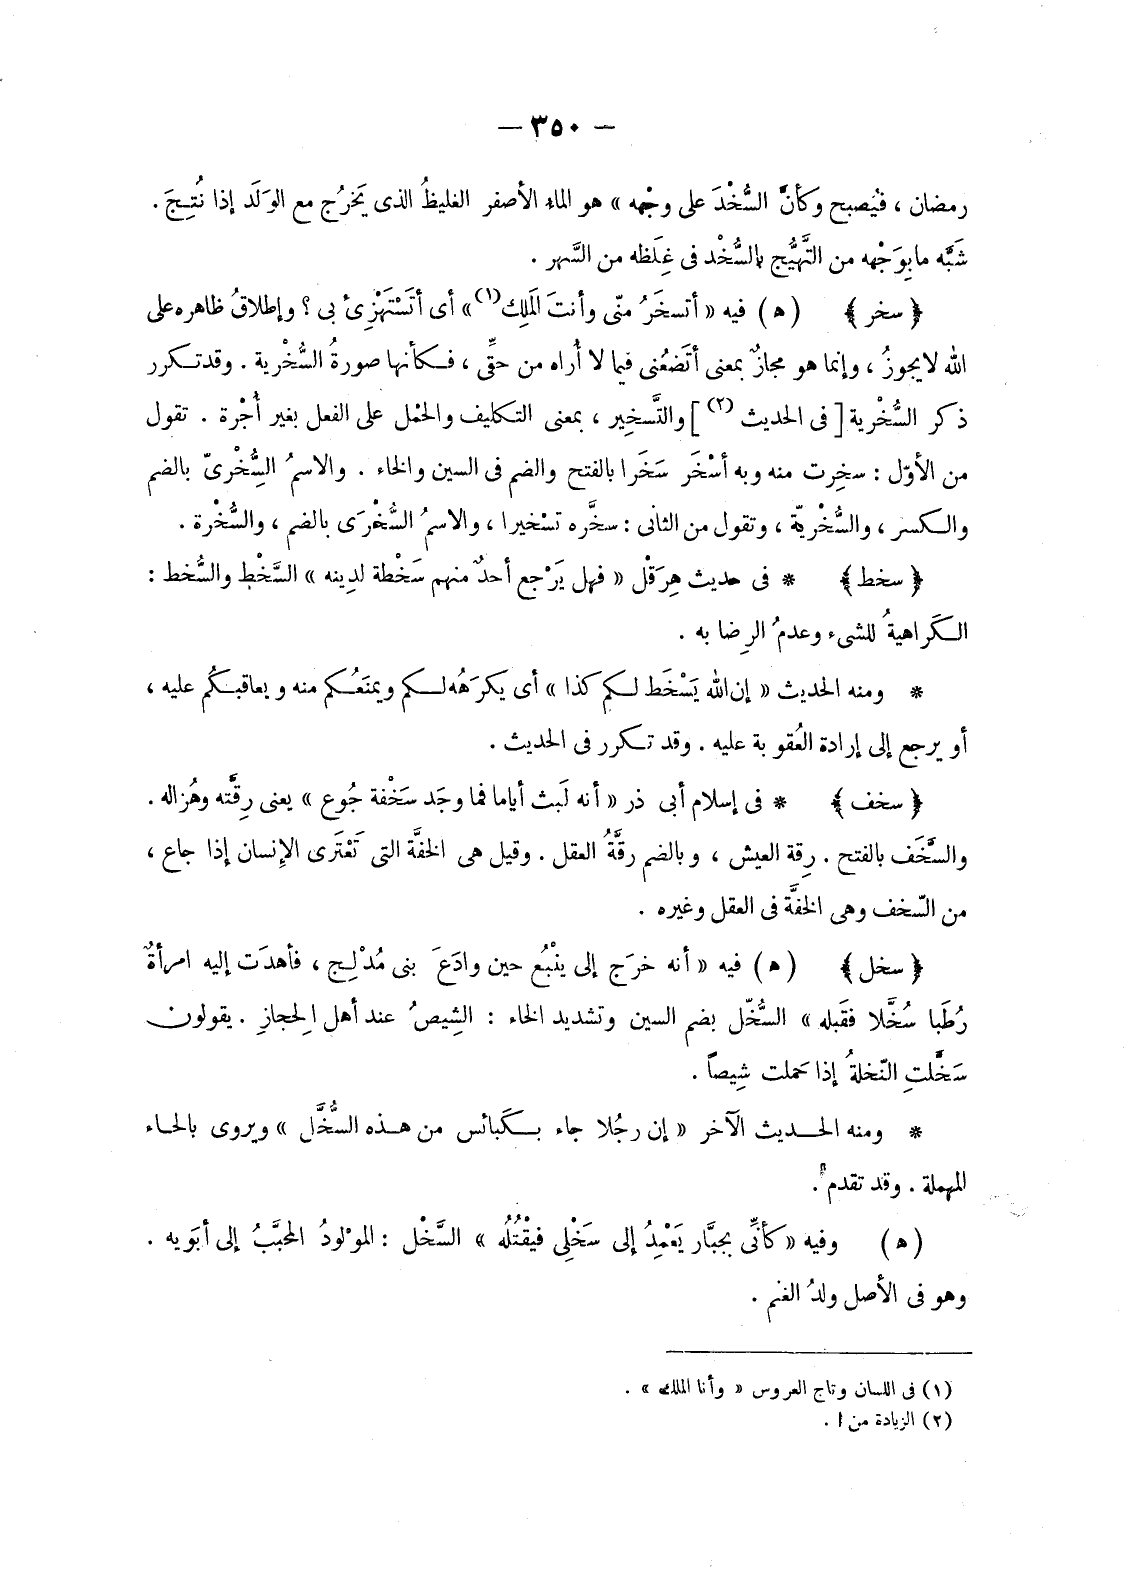 — ٣٥٠ —
رمضان ، فيُصبح وكأنَّ السُّخْدَ على وجْهه » هو الماء الأصفر الغليظُ الذى يَخرُج مع الوَلَد إذا نُتِجَ .
شَبَّه ما بِوَجْهه من التَّهيُّج بالسُّخْد فى غِلَظه من السَّهر .
﴿ سخر ﴾ (ه) فيه « أتسخَرُ منّى وأنتَ المَلِك(١)» أى أتَسْتَهْزِئ بى ؟ وإطلاقُ ظاهره على
الله لا يجوزُ ، وإنما هو مجازٌ بمعنى أتَضعُنى فيما لا أُراه من حقِّى ، فكأنها صورةُ السُّخْرية . وقد تكرر
ذكر السُّخْرية [ فى الحديث (٢) ] والتَّسخِير ، بمعنى التكليف والحْمل على الفعل بغير أُجْرة . تقول
من الأوّل : سخِرت منه وبه أسْخَر سَخَرا بالفتح والضم فى السين والخاء . والاسمُ السِّخْرىّ بالضم
والكسر ، والسُّخْريَّة ، وتقول من الثانى : سخَّره تسْخيرا ، والاسمُ السُّخْرَى بالضم ، والسُّخْرة .
﴿ سخط ﴾ * فى حديث هِرَقْل « فهل يَرْجع أحدٌ منهم سَخْطة لدِينه » السَّخْط والسُّخط :
الكَراهيةُ للشىء وعدمُ الرِضا به .
* ومنه الحديث « إن الله يَسْخَط لكم كذا » أى يكرَهُه لكم ويمنَعُكم منه ويعاقبكُم عليه ،
أو يرجع إلى إرادة العُقوبة عليه . وقد تكرر فى الحديث .
﴿ سخف ﴾ * فى إسلام أبى ذر « أنه لَبث أياما فما وجَد سَخْفة جُوع » يعنى رِقَّته وهُزاله .
والسَّخَف بالفتح . رِقة العيش ، وبالضم رقَّةُ العقل . وقيل هى الخفَّة التى تَعْتَرى الإنسان إذا جاع ،
من السّخف وهى الخفَّة فى العقل وغيره .
﴿ سخل ﴾ (ه) فيه « أنه خرَج إلى ينْبُع حين وادَعَ بنى مُدْلِج ، فأهدَت إليه امرأةٌ
رُطَبا سُخَّلا فقَبله » السُّخّل بضم السين وتشديد الخاء : الشِيصُ عند أهل الِحجازِ . يقولون
سَخَّلتِ النّخلةُ إذا حَملت شِيصاً .
* ومنه الحديث الآخر « إن رجُلا جاء بكَبائس من هذه السُّخَّل » ويروى بالحاء
المهملة . وقد تقدم .
(ه) وفيه « كأنِّى بجبَّار يَعْمِدُ إلى سَخْلِى فيقْتُلُه » السَّخْل : الموْلودُ المحبَّبُ إلى أبَويه .
وهو فى الأصل ولدُ الغنم .
(١) فى اللسان وتاج العروس « وأنا الملك » .
(٢) الزيادة من ا .